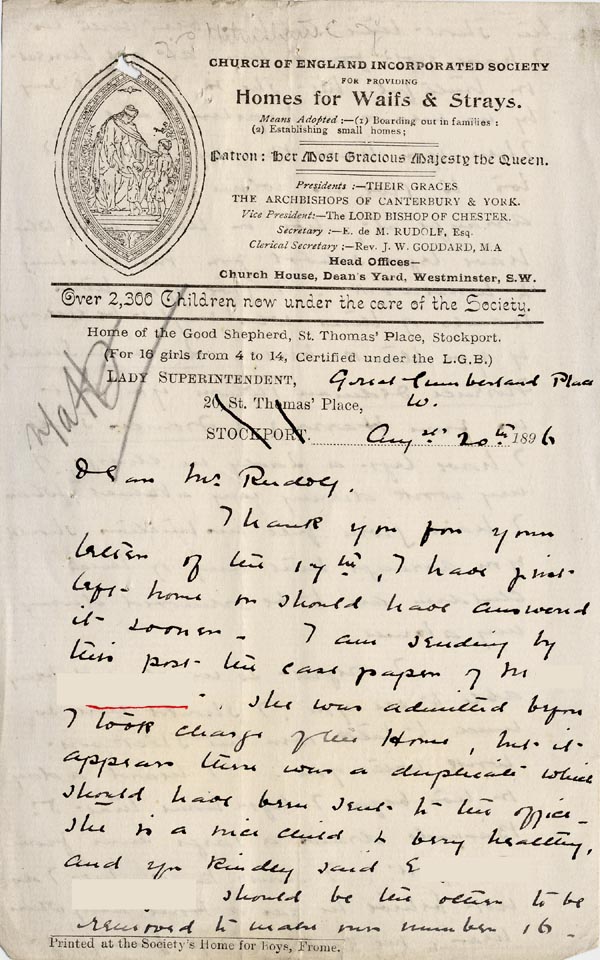 CHURCH OF ENGLAND INCORPORATED SOCIETY
FOR PROVIDING
Homes for Waifs & Strays.
Means Adopted :—(1) Boarding out in families :
(2) Establishing small homes;
Patron : Her Most Gracious Majesty the Queen.
Presidents :—THEIR GRACES
THE ARCHBISHOPS OF CANTERBURY & YORK.
Vice President:—The LORD BISHOP OF CHESTER.
Secretary :—E. de M. RUDOLF, Esq.
Clerical Secretary :—Rev. J. W. GODDARD, M.A
Head Offices—
Church House, Dean's Yard, Westminster, S.W.
Over 2,300 Children now under the care of the Society.
Home of the Good Shepherd, St. Thomas' Place, Stockport.
(For 16 girls from 4 to 14, Certified under the L.G.B.)
LADY SUPERINTENDENT, Great Cumberland Place
20, St. Thomas' Place, W.
STOCKPORT. Augst 20th 1896
Dear Mr. Rudolf.
Thank you for your
letter of the 17th, I have just
left home or should have answered
it sooner - I am sending by
this post the case paper of M
. She was admitted before
I took charge of the Home, but it
appears there was a duplicate which
should have been sent to the office -
She is a nice child & very healthy,
and you kindly said E
should be the other to be
received to make our number 16 -
Printed at the Society's Home for Boys, Frome.